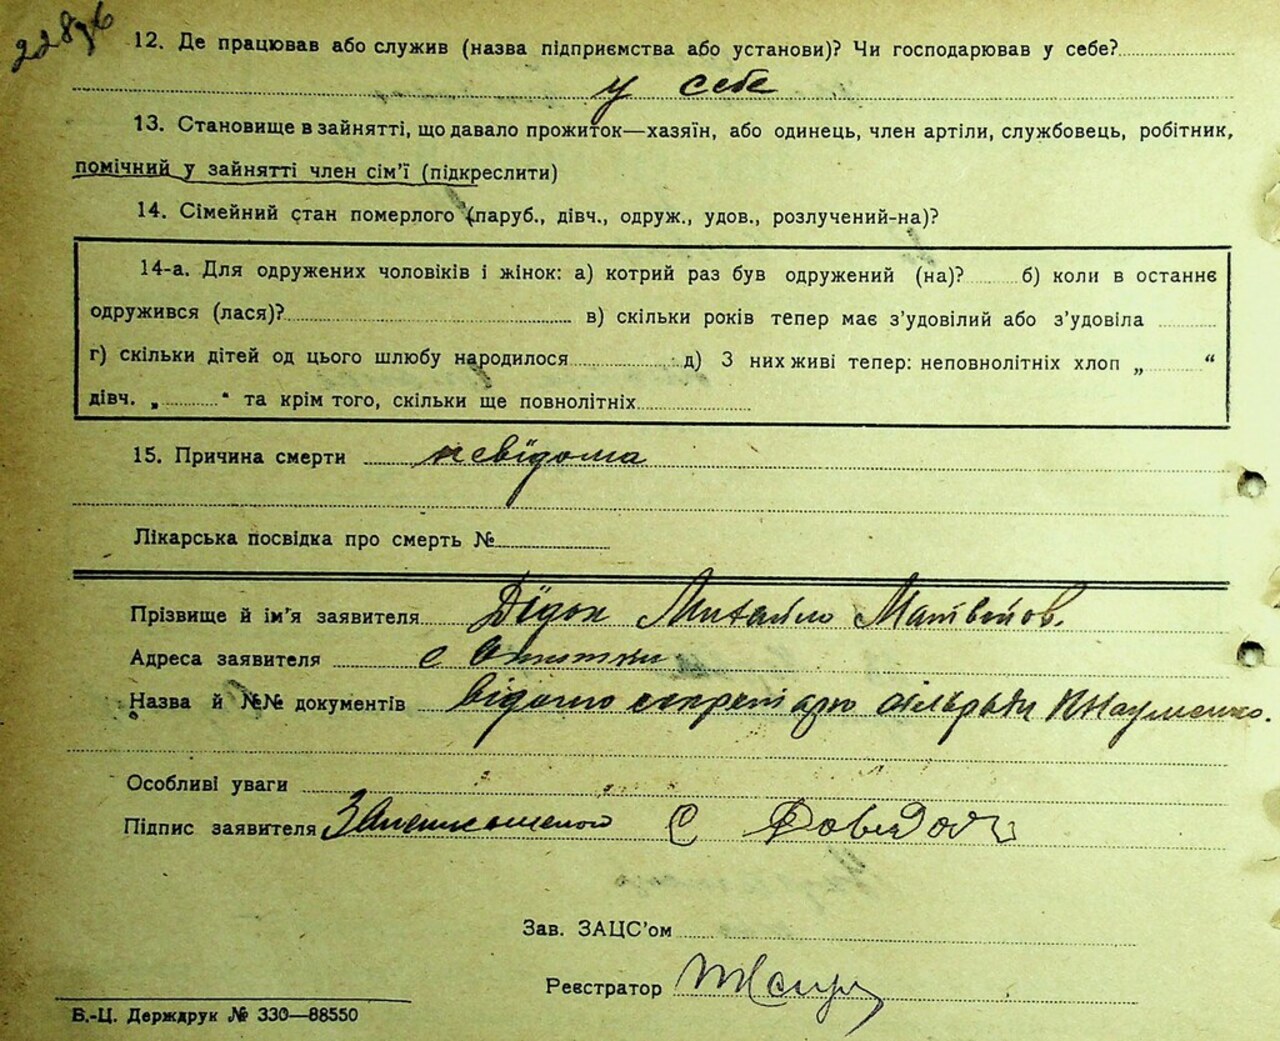 228зв
12. Де працював або служив (назва підприємства або установи)? Чи господарював у себе?
у себе
13. Становище в зайнятті, що давало прожиток—хазяїн, або одинець, член артіли, службовець, робітник,
помічний у зайнятті член сім’ї (підкреслити)
14. Сімейний стан померлого (паруб., дівч., одруж., удов., розлучений-на)?
14-а. Для одружених чоловіків і жінок: а) котрий раз був одружений (на)? б) коли в останнє
одружився (лася)? в) скільки років тепер має з’удовілий або з’удовіла
г) скільки дітей од цього шлюбу народилося д) З них живі тепер: неповнолітніх хлоп „ “
дівч. „ “ та крім того, скільки ще повнолітніх
15. Причина смерти невідома
Лікарська посвідка про смерть №
Прізвище й ім’я заявителя Дідок Михайло Матвійов.
Адреса заявителя с
Назва й №№ документів відомо секретарю сільради Науменко.
Особливі уваги
Підпис заявителя За неписьменого
Зав. ЗАЦС’ом
Реєстратор
Б.-Ц. Держдрук № 330—88550